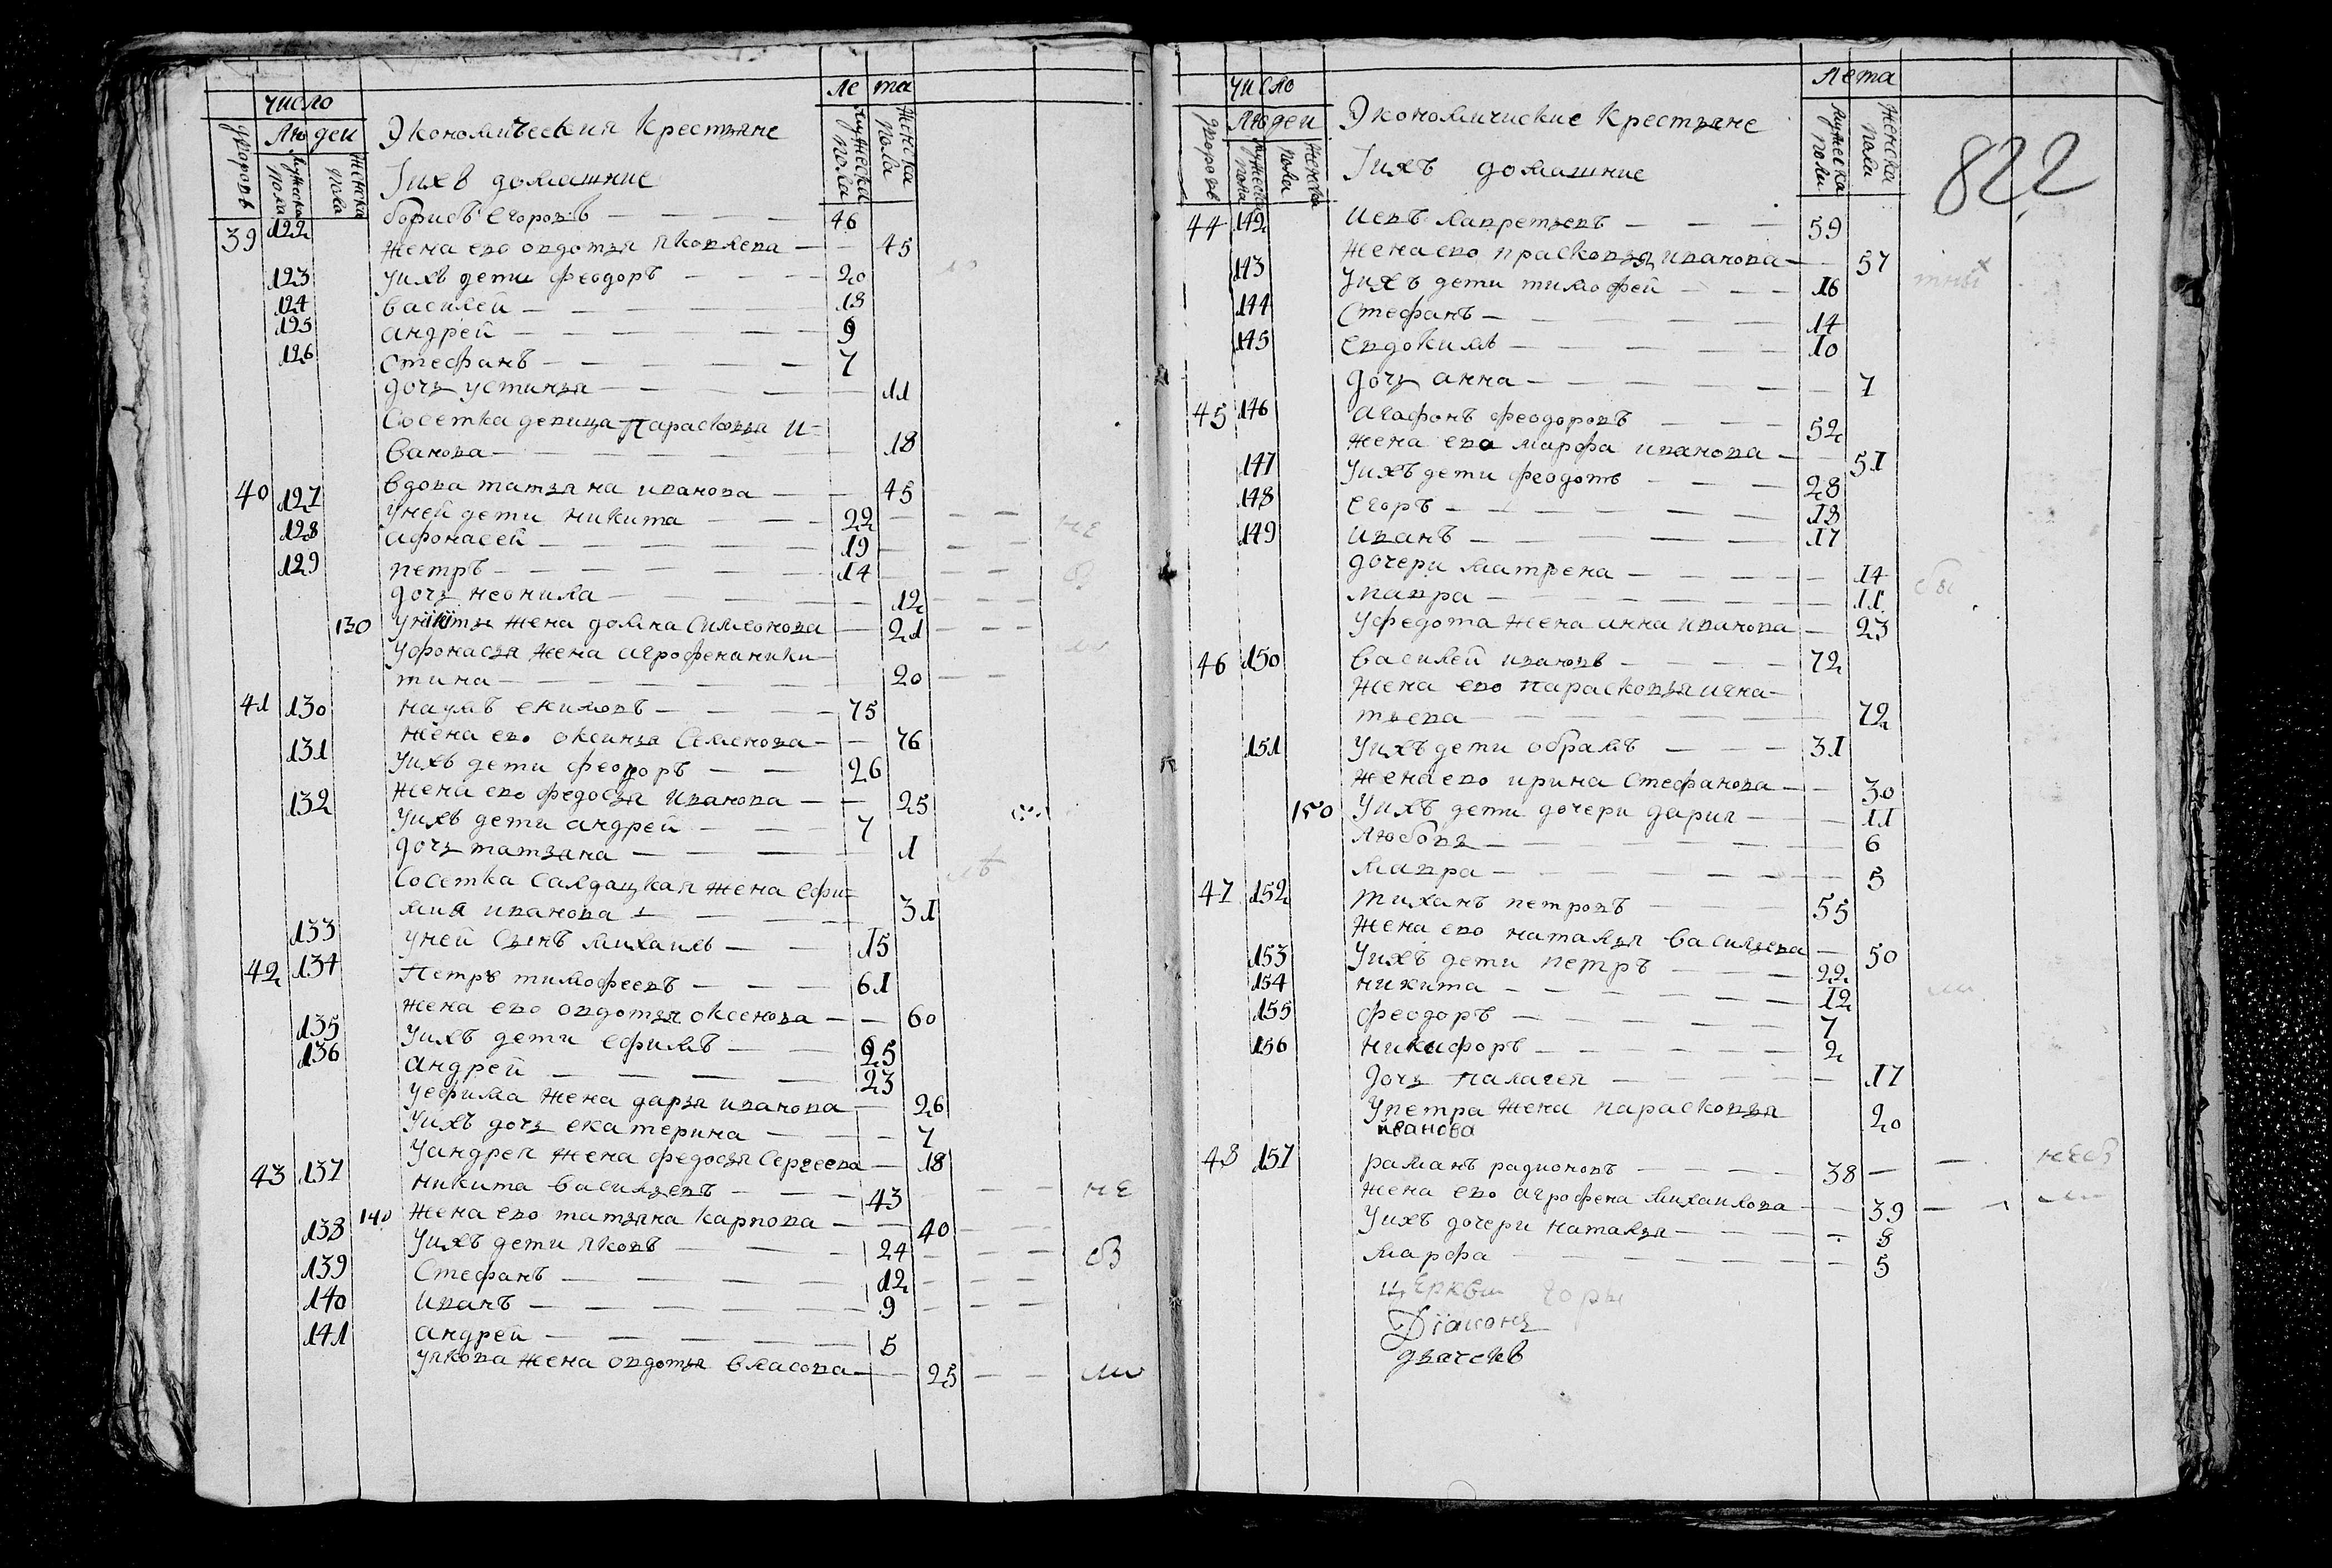 число Ле та
дворовъ Людей Экономическия Крестьяне
мужеска пола женска пола Iихъ домашние мужеска пола женска пола
39 122 борисъ егоровъ 46
жена ево овдотья яковлева 45
123 Уихъ дети феодоръ 20
124 василей 18
125 андрей 9
126 стефанъ 7
дочь устинья 11
Сосетка девица Парасковья И
ванова 18
40 127 вдова татьяна иванова 45
Уней дети никита 22
128 афонасей 19 не
129 петръ 14
дочь неонила 12
130 Уникиты жена домна симеонова 21
Уфонасья жена агрофена ники
тина 20
41 130 наумъ екимовъ 75
жена ево оксинья Семенова 76
131 Уихъ дети феодоръ 26
жена ево федосья иванова 25
132 Уихъ дети андрей 7
дочь татьяна 1
Сосетка салдацкая жена ефи
мия иванова 31
133 Уней сынъ михаилъ 15
42 134 Петръ тимофеевъ 61
жена ево овдотья оксенова 60
135 Уихъ дети ефимъ 25
136 андрей 23
Уефима жена дарья иванова 26
Уихъ дочь екатерина 7
Уандрея жена федосья Сергеева 18
43 137 никита васильевъ 43 не
140 жена ево татьяна карпова 40
138 Уихъ дети яковъ 24 б
139 Стефанъ 12
140 иванъ 9
141 андрей 5
Уякова жена овдотья власова 25 ли
число Лета
дворовъ Людей Экономичиские Крестьяне
мужеска пола женска пола Iихъ домашние мужеска пола женска пола 822
44 142 иевъ лаврентьевъ 59
жена ево прасковья иванова 57
143 Уихъ дети тимофей 16
144 Стефанъ 14
145 евдокимъ 10
дочь анна 7
45 146 агафонъ феодоровъ 52
жена ево марфа иванова 51
147 Уихъ дети феодотъ 28
148 егоръ 18
149 иванъ 17
дочери матрена 14
мавра 11
Уфедота жена анна иванова 23
46 150 василей ивановъ 72
жена ево парасковья игна
тьева 72
151 Уихъ дети обрамъ 31
жена ево ирина Стефанова 30
150 Уихъ дети дочери дария 11
любовь 6
мавра 5
47 152 тиханъ петровъ 55
жена ево наталья васильева 50
153 Уихъ дети петръ 22
154 никита 12
155 феодоръ 7
156 никифоръ 2
дочь палагея 17
Упетра жена парасковья 20
иванова
48 157 раманъ радионовъ 38
жена ево агрофена михаилова 39
Уихъ дочери наталья 8
марфа 5
церкви горы
Дiаконъ
дьячекъ